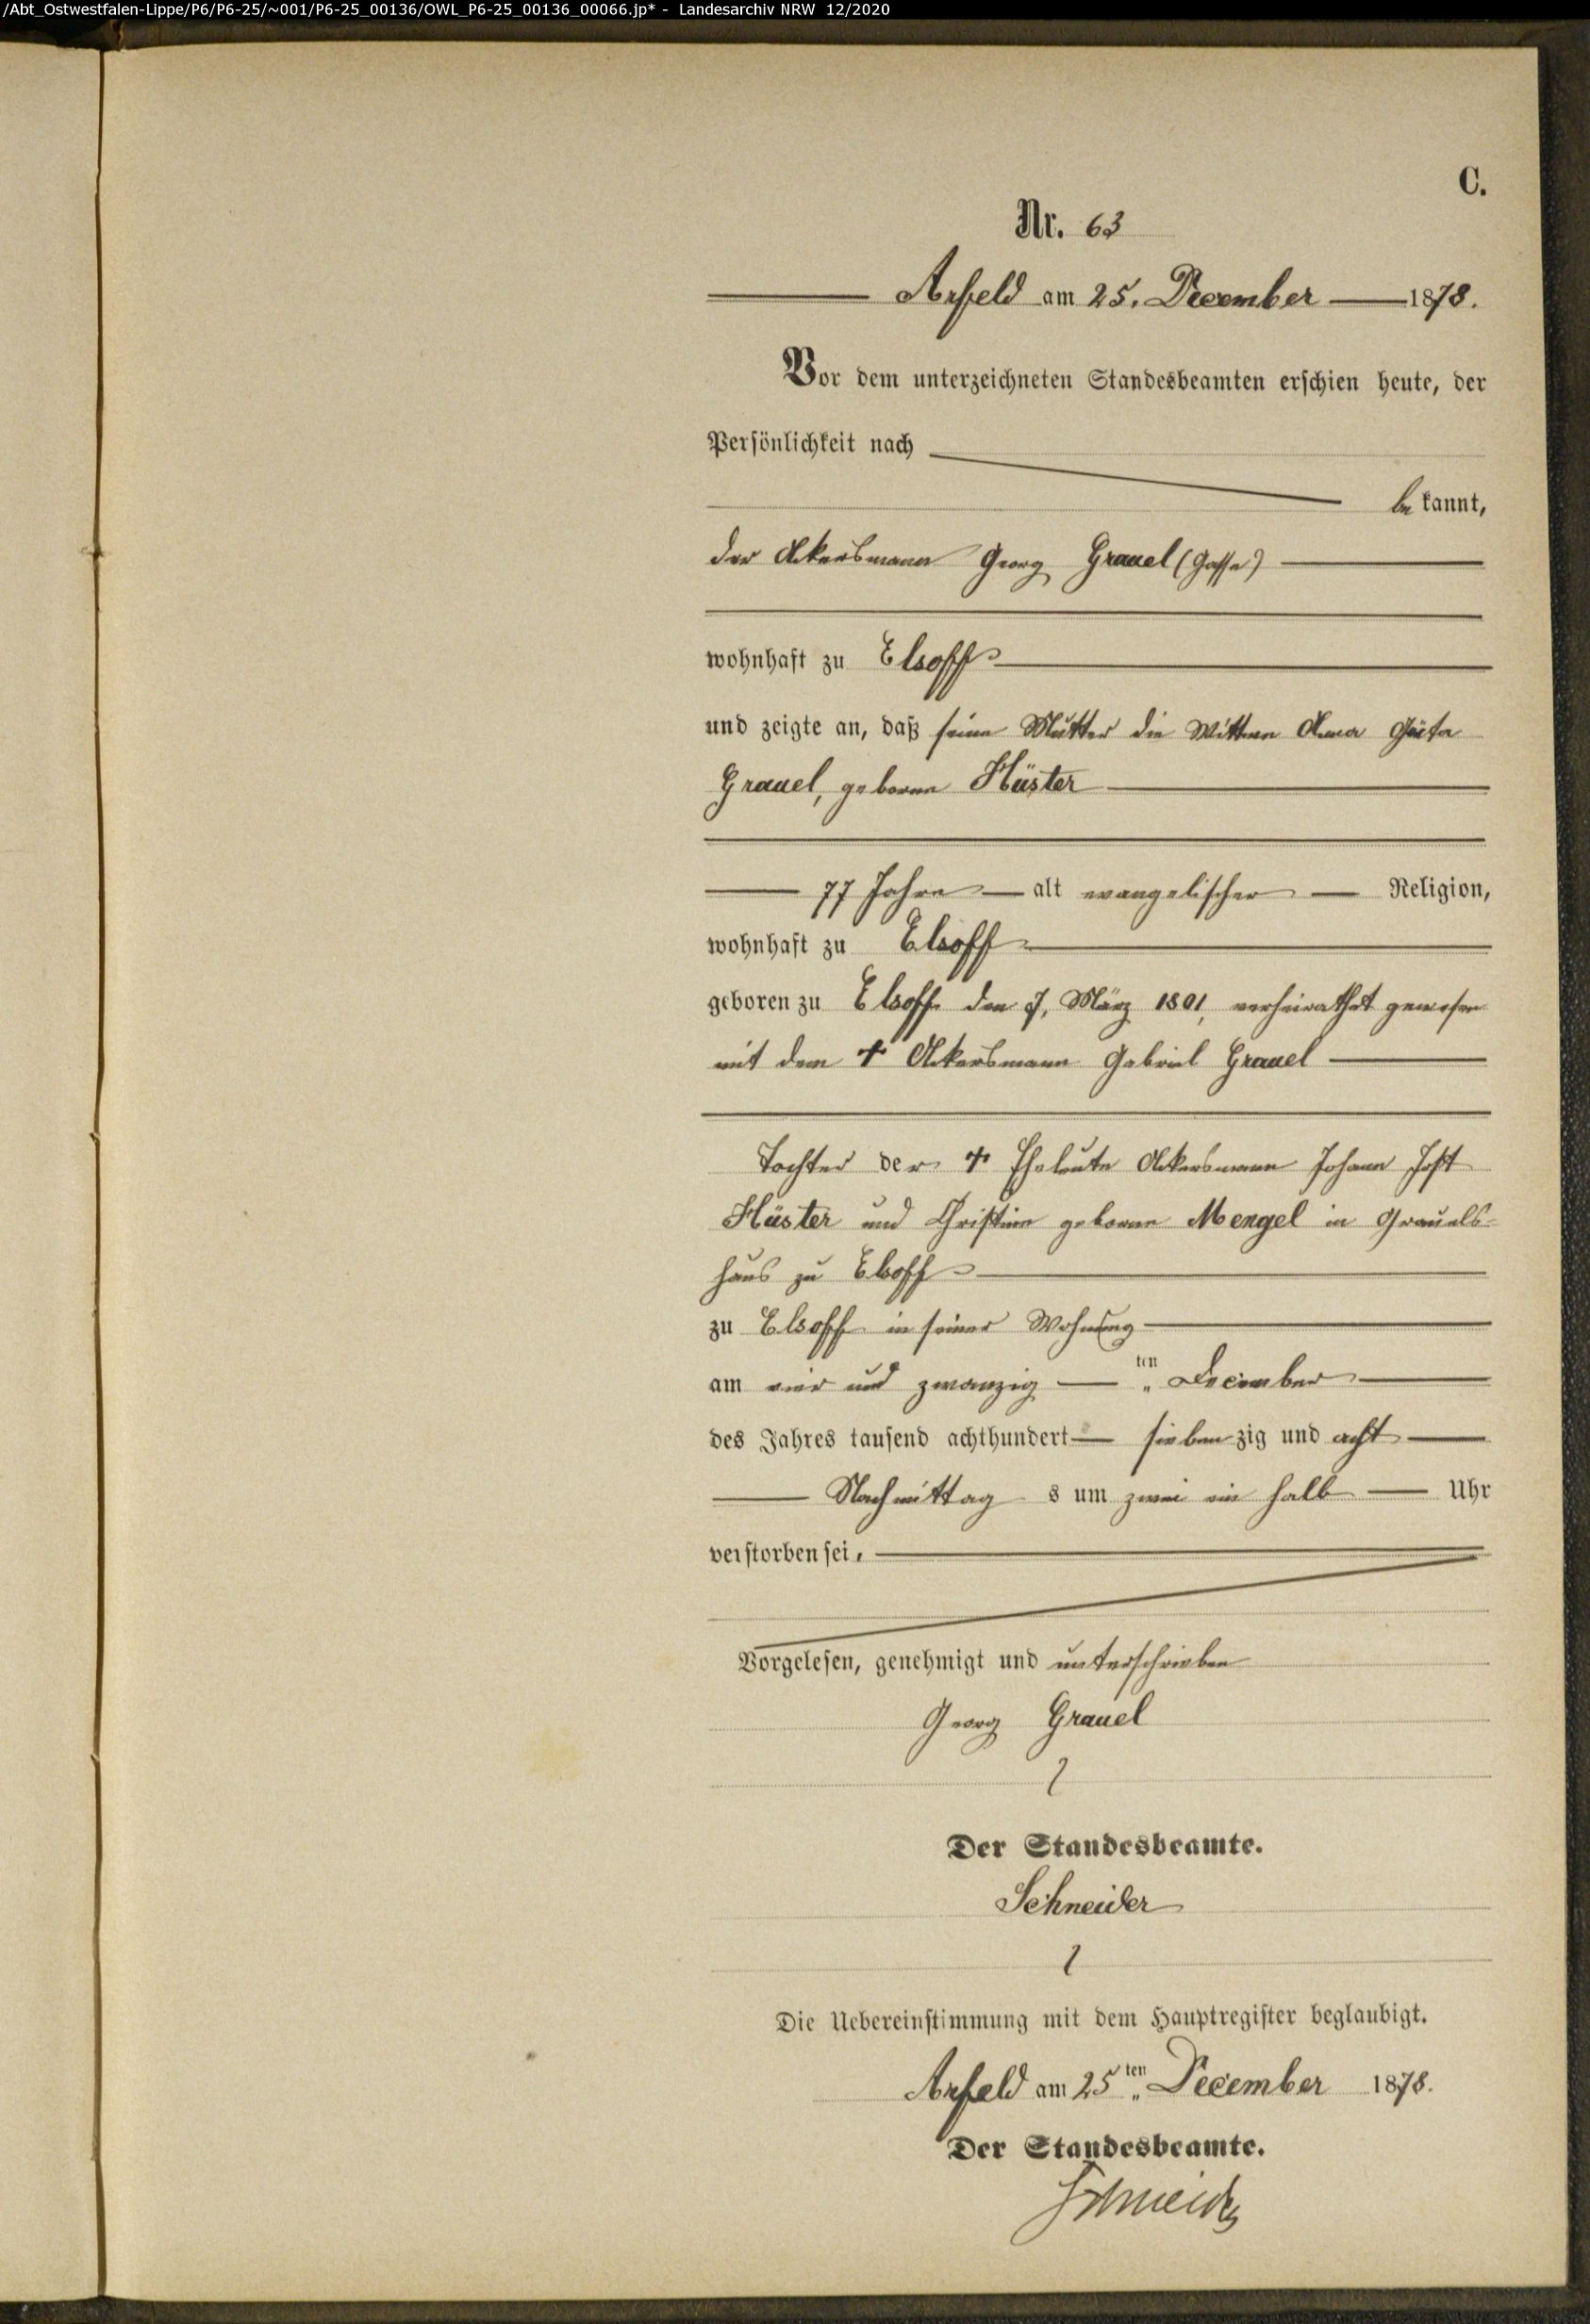 /Abt_Ostwestfalen-Lippe/P6/P6-25/~001/P6-25_00136/OWL_P6-25_00136_00066.jp* - Landesarchiv NRW 12/2020
C.
Nr. 63
Arfeld am 25. December 1878.
Vor dem unterzeichneten Standesbeamten erschien heute, der
Persönlichkeit nach
be kannt,
der Ackersmann Georg Grauel (Gasse)
wohnhaft zu Elsoff
und zeigte an, daß seine Mutter die Wittwe Anna
Grauel, geborne Hüster
77 Jahre alt evangelischer Religion,
wohnhaft zu Elsoff
geboren zu Elsoff den 7. März 1801, verheirathet gewesen
mit dem † Ackersmann Gabriel Grauel
Tochter der † Eheleute Ackersmann Johann Jost
Hüster und Christine geborne Mengel in Grauels-
haus zu Elsoff
zu Elsoff in seiner Wohnung
am vier und zwanzig ten December
des Jahres tausend achthundert sieben zig und acht
Nachmittag s um zwei ein halb Uhr
verstorben sei.
Vorgelesen, genehmigt und unterschrieben
Georg Grauel
Der Standesbeamte.
Schneider
Die Uebereinstimmung mit dem Hauptregister beglaubigt.
Arfeld am 25 ten December 1878.
Der Standesbeamte.
Schneider